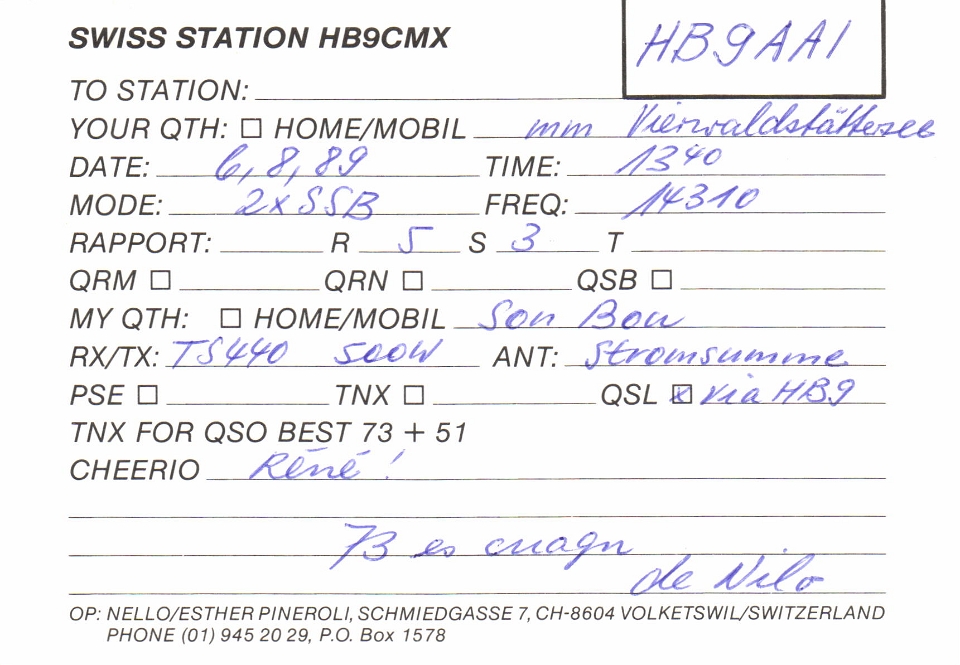 SWISS STATION HB9CMX
HB9AAI
TO STATION:
YOUR QTH: ☐ HOME/MOBIL mm Vierwaldstättersee
DATE: 6,8,89 TIME: 1340
MODE: 2xSSB FREQ: 14310
RAPPORT: R 5 S 3 T
QRM ☐ QRN ☐ QSB ☐
MY QTH: ☐ HOME/MOBIL Son Bou
RX/TX: TS440 500W ANT: Stromsumme
PSE ☐ TNX ☐ QSL ☒ via HB9
TNX FOR QSO BEST 73 + 51
CHEERIO Réné!
73 es cuagn
de Nilo
OP: NELLO/ESTHER PINEROLI, SCHMIEDGASSE 7, CH-8604 VOLKETSWIL/SWITZERLAND
PHONE (01) 945 20 29, P.O. Box 1578